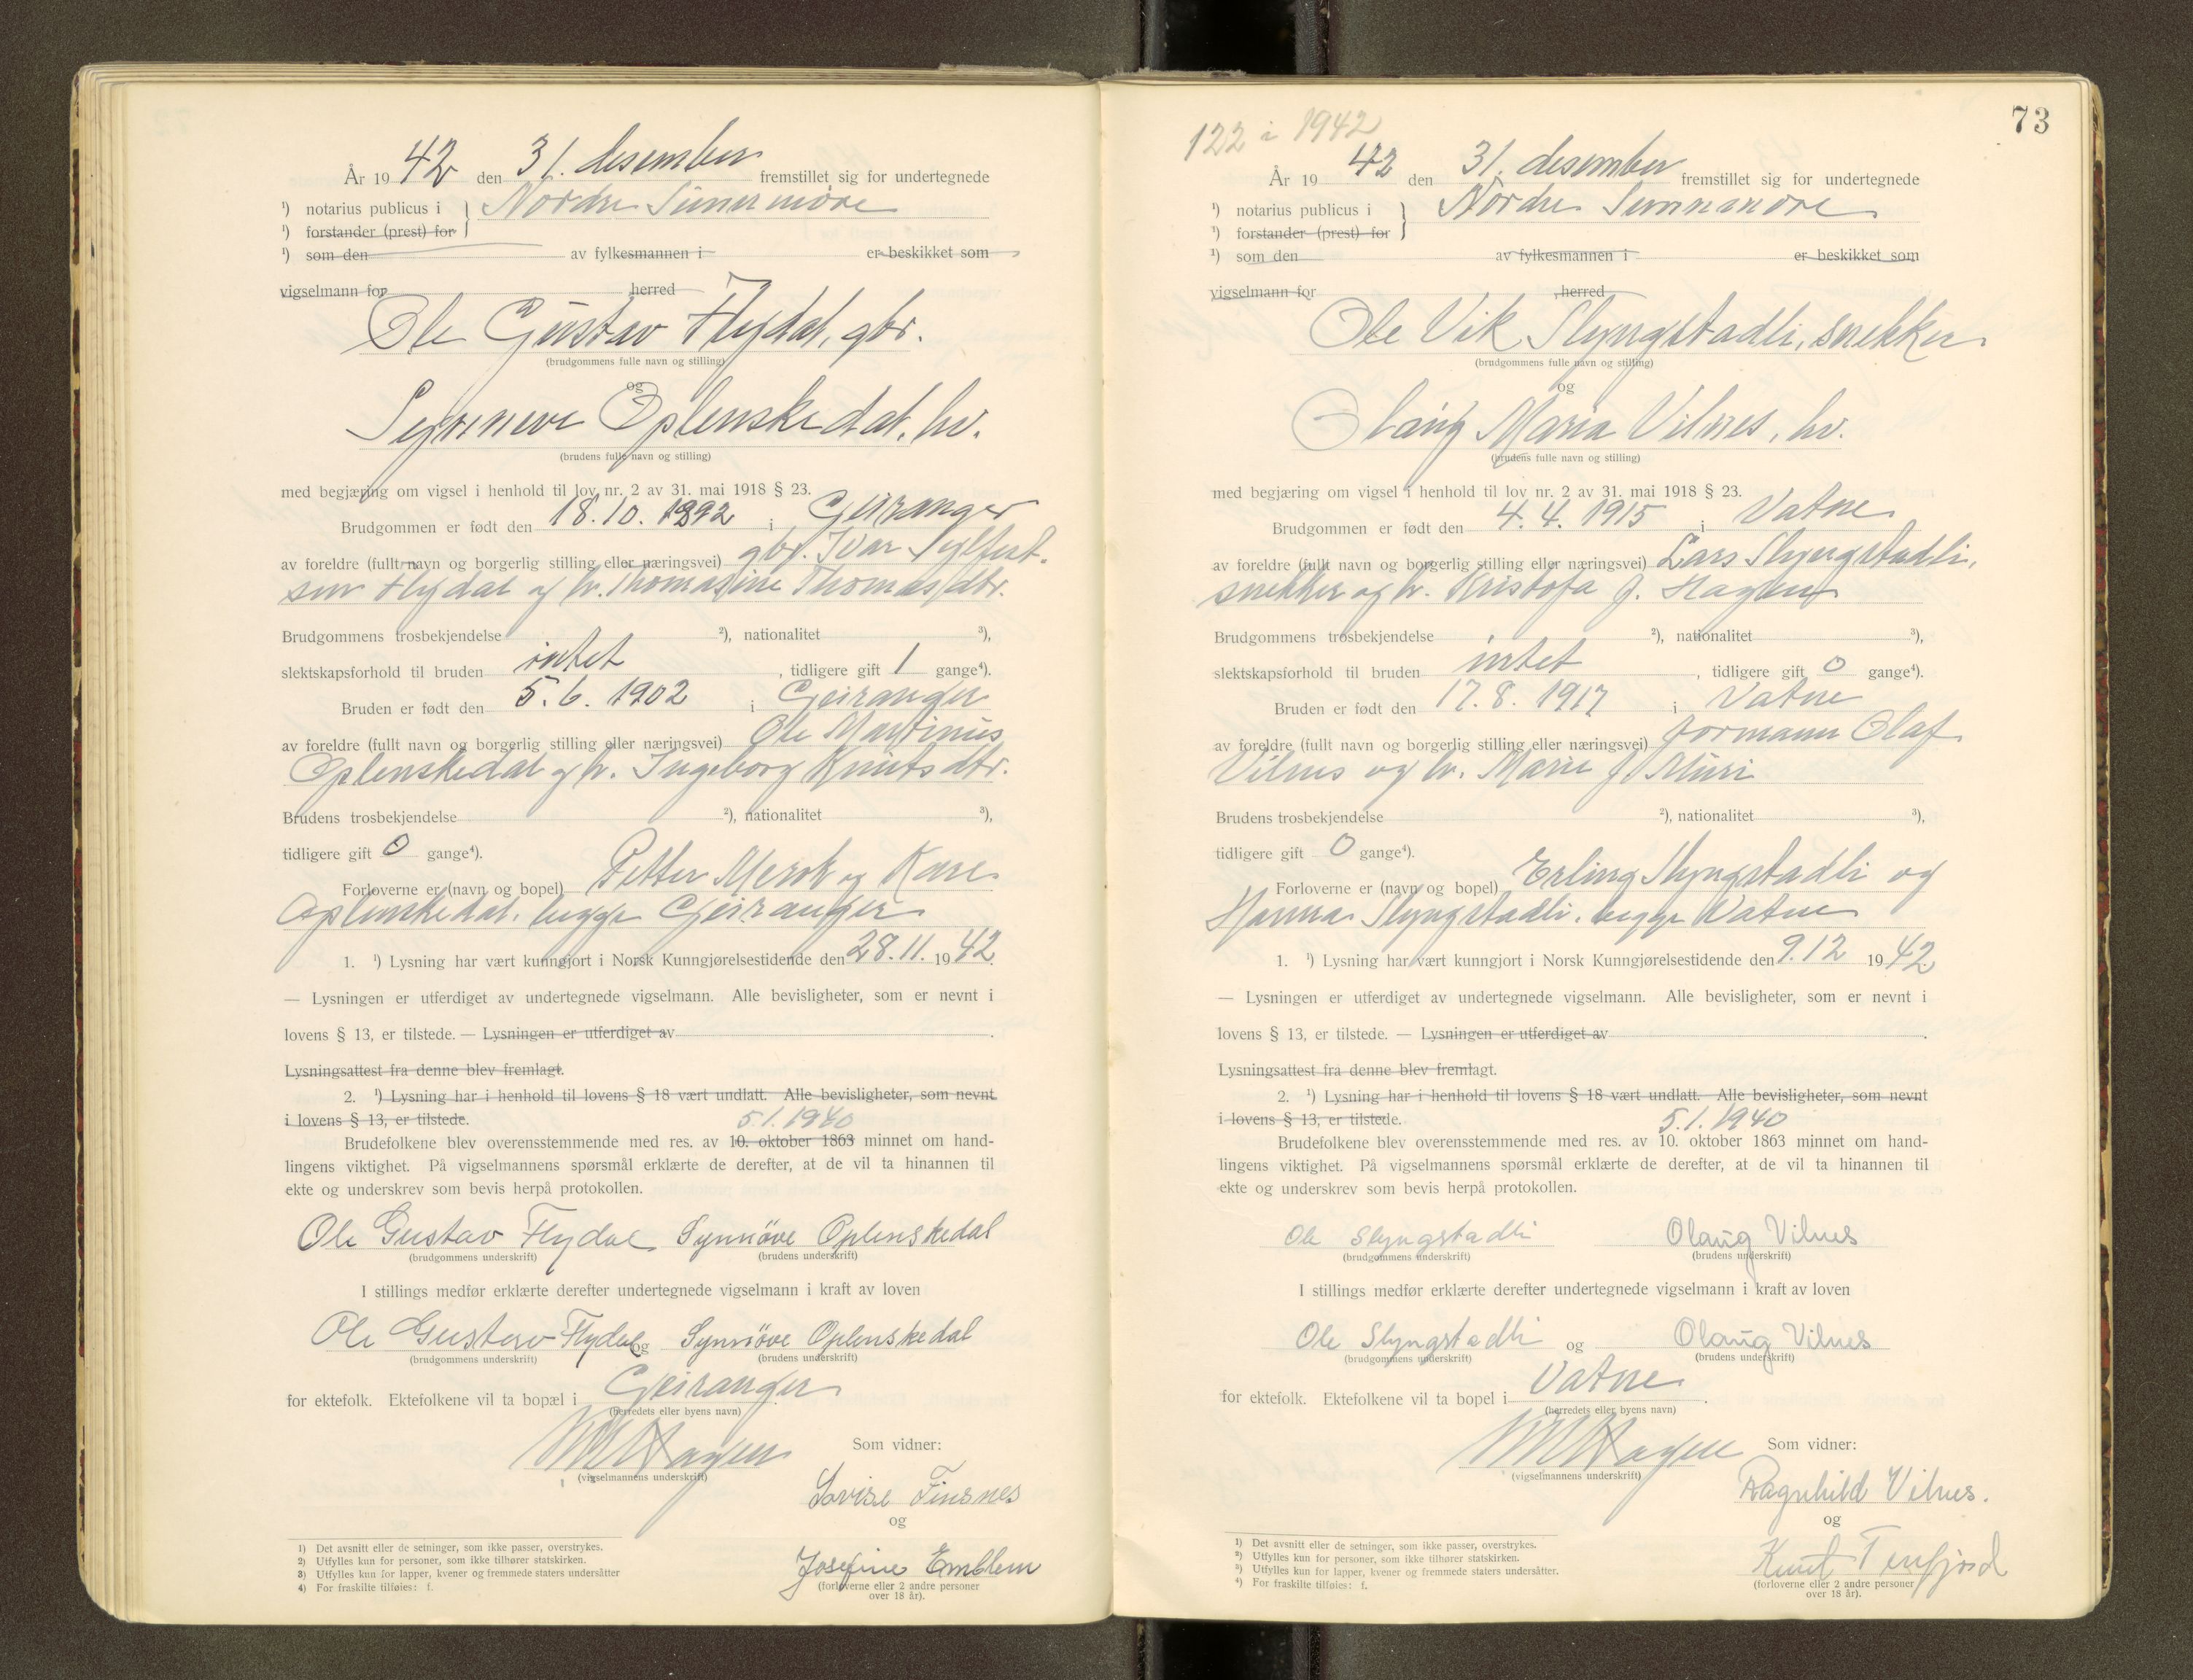 År 19 42 den 31. desember fremstillet sig for undertegnede
¹) notarius publicus i } Nordre Sunnmøre
¹) forstander (prest) for
¹) som den av fylkesmannen i er beskikket som
vigselmann for herred
Ole Gustav Flydal, gbr.
(brudgommens fulle navn og stilling)
og
Synneve Oplenskedal, hv.
(brudens fulle navn og stilling)
med begjæring om vigsel i henhold til lov nr. 2 av 31. mai 1918 § 23.
Brudgommen er født den 18.10.1892 i Geiranger
av foreldre (fullt navn og borgerlig stilling eller næringsvei) gbr. Ivar Sylfest-
sen Flydal og h. Thomasine Thomasdtr.
Brudgommens trosbekjendelse ²), nationalitet ³),
slektskapsforhold til bruden intet, tidligere gift 1 gange⁴).
Bruden er født den 5.6.1902 i Geiranger
av foreldre (fullt navn og borgerlig stilling eller næringsvei) Ole Martinus
Oplenskedal og h. Ingeborg Knutsdtr.
Brudens trosbekjendelse ²), nationalitet ³),
tidligere gift 0 gange⁴).
Forloverne er (navn og bopel) Petter Merok og Kare
Oplenskedal, begge Geiranger
1. ¹) Lysning har vært kunngjort i Norsk Kunngjørelsestidende den 28.11. 1942.
— Lysningen er utferdiget av undertegnede vigselmann. Alle bevisligheter, som er nevnt i
lovens § 13, er tilstede. — Lysningen er utferdiget av .
Lysningsattest fra denne blev fremlagt.
2. ¹) Lysning har i henhold til lovens § 18 vært undlatt. Alle bevisligheter, som nevnt
i lovens § 13, er tilstede. 5.1.1940
Brudefolkene blev overensstemmende med res. av 10. oktober 1863 minnet om hand-
lingens viktighet. På vigselmannens spørsmål erklærte de derefter, at de vil ta hinannen til
ekte og underskrev som bevis herpå protokollen.
Ole Gustav Flydal Synnöve Oplenskedal
(brudgommens underskrift) (brudens underskrift)
I stillings medfør erklærte derefter undertegnede vigselmann i kraft av loven
Ole Gustav Flydal og Synnöve Oplenskedal
(brudgommens underskrift) (brudens underskrift)
for ektefolk. Ektefolkene vil ta bopæl i Geiranger
(herredets eller byens navn)
Hagen Som vidner:
(vigselmannens underskrift)
Lovise Finsnes
og
Josefine Emblem
(forloverne eller 2 andre personer
over 18 år).
1) Det avsnitt eller de setninger, som ikke passer, overstrykes.
2) Utfylles kun for personer, som ikke tilhører statskirken.
3) Utfylles kun for lapper, kvener og fremmede staters undersåtter
4) For fraskilte tilføies: f.
73
122 i 1942
År 19 42 den 31. desember fremstillet sig for undertegnede
¹) notarius publicus i } Nordre Sunnmøre
¹) forstander (prest) for
¹) som den av fylkesmannen i er beskikket som
vigselmann for herred
Ole Vik Slyngstadli, snekker
(brudgommens fulle navn og stilling)
og
Olaug Maria Vilnes, hv.
(brudens fulle navn og stilling)
med begjæring om vigsel i henhold til lov nr. 2 av 31. mai 1918 § 23.
Brudgommen er født den 4.4.1915 i Vatne
av foreldre (fullt navn og borgerlig stilling eller næringsvei) Lars Slyngstadli,
snekker og h. Kristofa f. Hagen
Brudgommens trosbekjendelse ²), nationalitet ³),
slektskapsforhold til bruden intet, tidligere gift 0 gange⁴).
Bruden er født den 17.8.1917 i Vatne
av foreldre (fullt navn og borgerlig stilling eller næringsvei) formann Olaf
Vilnes og h. Marie f. Muri
Brudens trosbekjendelse ²), nationalitet ³),
tidligere gift 0 gange⁴).
Forloverne er (navn og bopel) Erling Slyngstadli og
Hanna Slyngstadli, begge Vatne
1. ¹) Lysning har vært kunngjort i Norsk Kunngjørelsestidende den 9.12 1942.
— Lysningen er utferdiget av undertegnede vigselmann. Alle bevisligheter, som er nevnt i
lovens § 13, er tilstede. — Lysningen er utferdiget av .
Lysningsattest fra denne blev fremlagt.
2. ¹) Lysning har i henhold til lovens § 18 vært undlatt. Alle bevisligheter, som nevnt
i lovens § 13, er tilstede. 5.1.1940
Brudefolkene blev overensstemmende med res. av 10. oktober 1863 minnet om hand-
lingens viktighet. På vigselmannens spørsmål erklærte de derefter, at de vil ta hinannen til
ekte og underskrev som bevis herpå protokollen.
Ole Slyngstadli Olaug Vilnes
(brudgommens underskrift) (brudens underskrift)
I stillings medfør erklærte derefter undertegnede vigselmann i kraft av loven
Ole Slyngstadli og Olaug Vilnes
(brudgommens underskrift) (brudens underskrift)
for ektefolk. Ektefolkene vil ta bopel i Vatne.
(herredets eller byens navn)
Hagen Som vidner:
(vigselmannens underskrift)
Ragnhild Vilnes.
og
Knut Tenfjord
(forloverne eller 2 andre personer
over 18 år).
¹) Det avsnitt eller de setninger, som ikke passer, overstrykes.
²) Utfylles kun for personer, som ikke tilhører statskirken.
³) Utfylles kun for lapper, kvener og fremmede staters undersåtter.
⁴) For fraskilte tilføies: f.